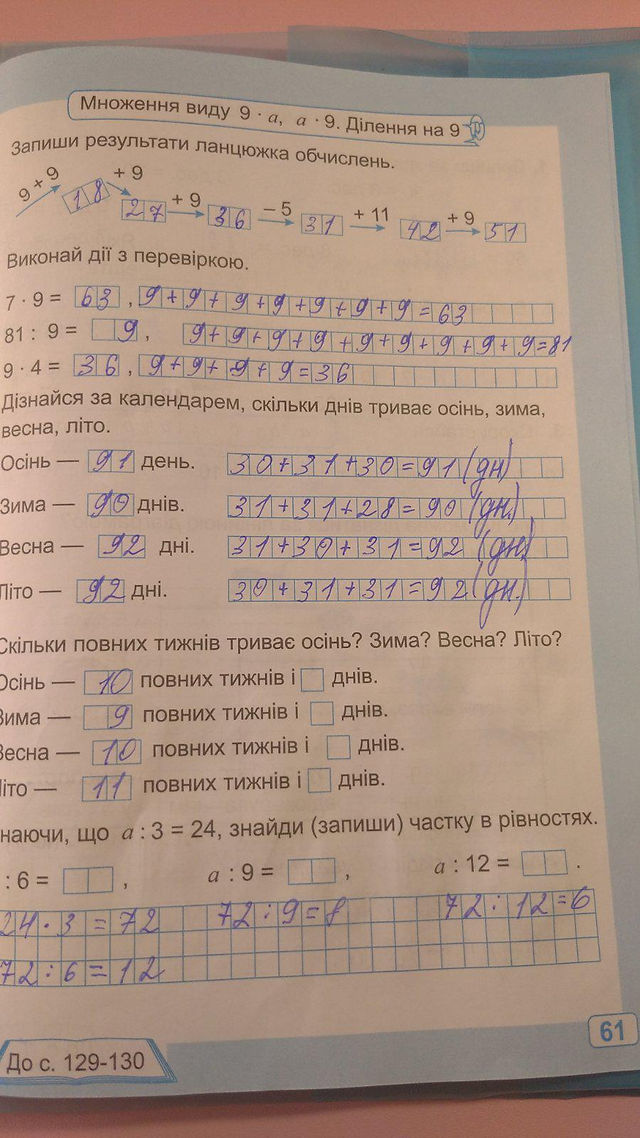 Множення виду 9 · а, а · 9. Ділення на 9
Запиши результати ланцюжка обчислень.
9 + 9 18 + 9 27 + 9 36 – 5 31 + 11 42 + 9 51
Виконай дії з перевіркою.
7 · 9 = 63 , 9+9+9+9+9+9+9=63
81 : 9 = 9 , 9+9+9+9+9+9+9+9+9=81
9 · 4 = 36 , 9+9+9+9=36
Дізнайся за календарем, скільки днів триває осінь, зима,
весна, літо.
Осінь — 91 день. 30+31+30=91(дн)
Зима — 90 днів. 31+31+28=90 (дн.)
Весна — 92 дні. 31+30+31=92 (дн)
Літо — 92 дні. 30+31+31=92(дн.)
Скільки повних тижнів триває осінь? Зима? Весна? Літо?
Осінь — 10 повних тижнів і днів.
Зима — 9 повних тижнів і днів.
Весна — 10 повних тижнів і днів.
іто — 11 повних тижнів і днів.
наючи, що а : 3 = 24, знайди (запиши) частку в рівностях.
: 6 = , а : 9 = , а : 12 = .
24·3=72 72:9=8 72:12=6
72:6=12
61
До с. 129-130